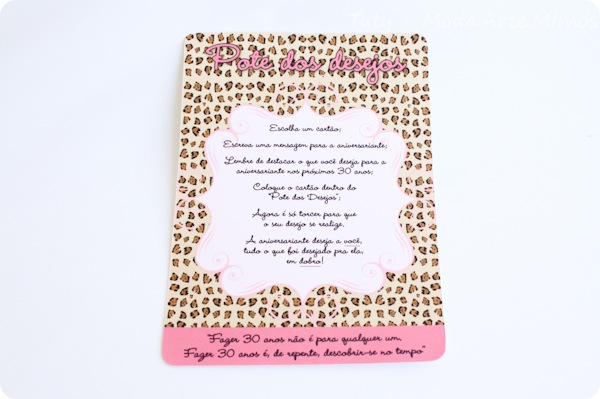 Tuty - Moda Arte Mimos
Pote dos desejos
Escolha um cartão;
Escreva uma mensagem para a aniversariante;
Lembre de destacar o que você deseja para a
aniversariante nos próximos 30 anos;
Coloque o cartão dentro do
"Pote dos Desejos";
Agora é só torcer para que
o seu desejo se realize.
A aniversariante deseja a você,
tudo o que foi desejado pra ela,
em dobro!
"Fazer 30 anos não é para qualquer um.
Fazer 30 anos é, de repente, descobrir-se no tempo"